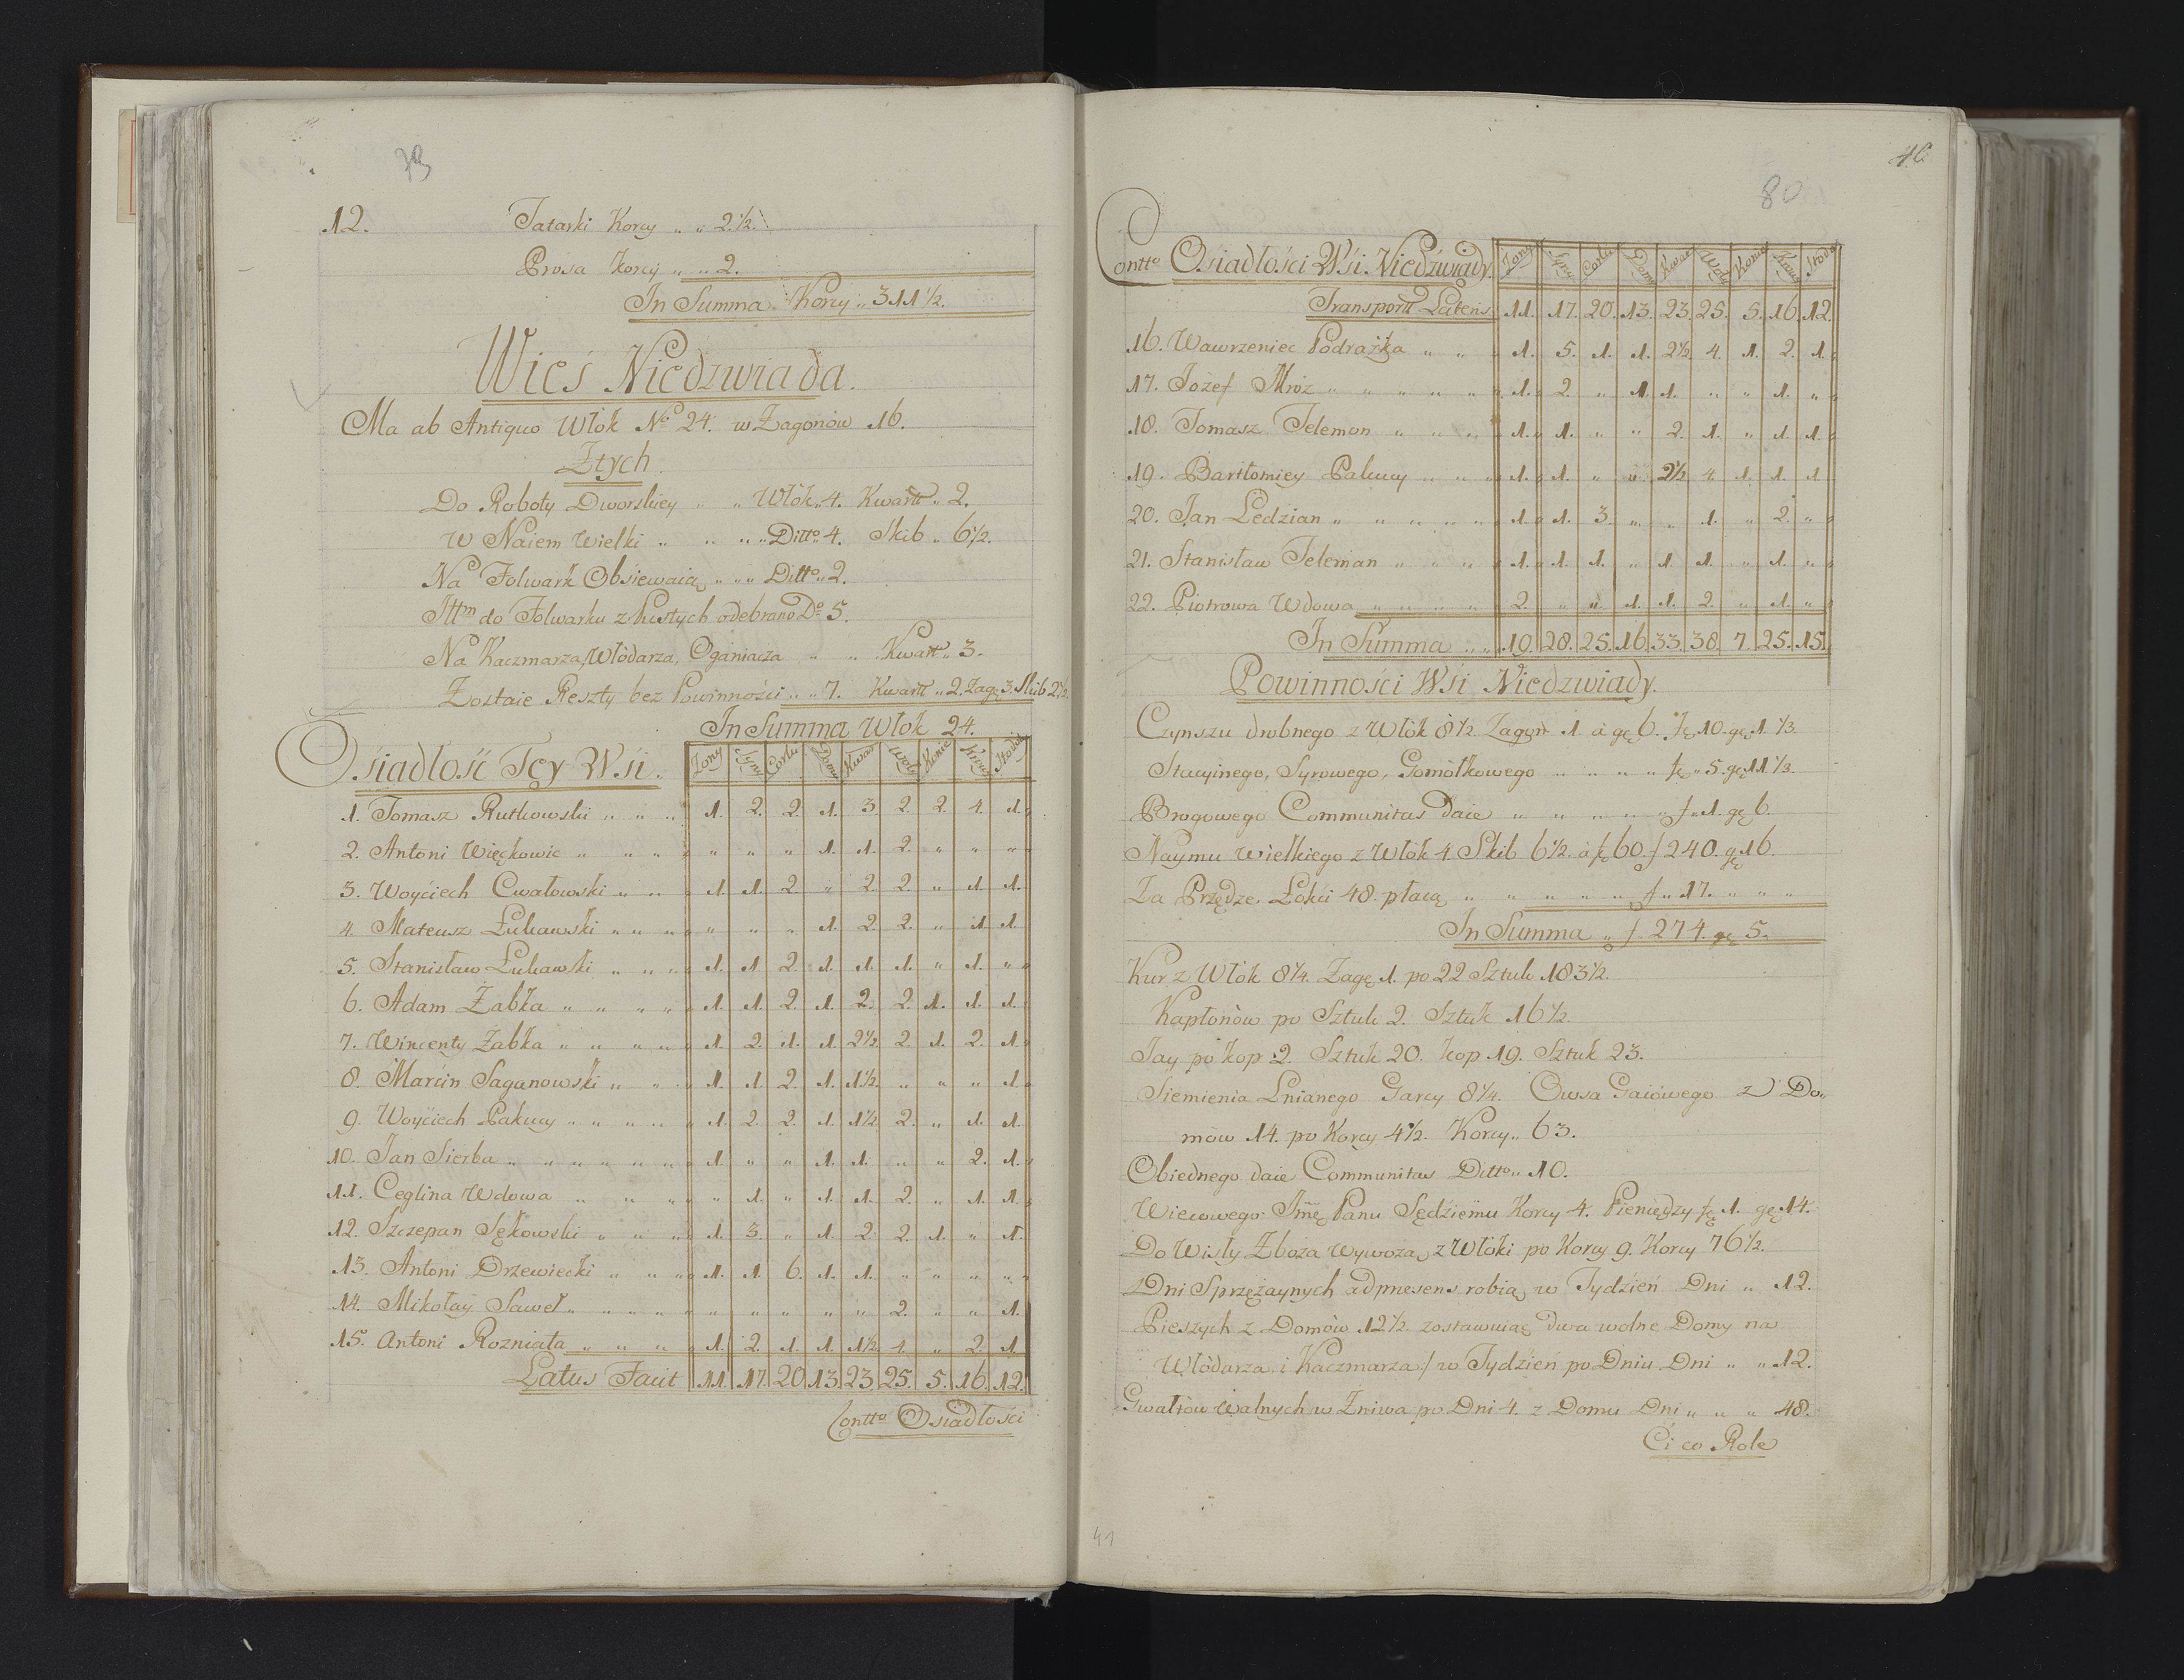 79
12. Tatarki Korcy „ „ 2½.
Prosa Korcy „ „ 2.
In Summa Korcy „ 311½.
Wieś Niedzwiada.
Ma ab Antiquo Włok No 24. w Zagonow 16.
Z tych
Do Roboty Dworskiey „ „ Włok „ 4. Kwartt „ 2.
W Naiem Wielki „ „ „ „ Ditto „ 4. Skib „ 6½.
Na Folwark Obsiewaią „ „ „ Ditto „ 2.
Ittm do Folwarku z Pustych odebrano Do 5.
Na Kaczmarza, Włódarza, Oganiacza „ „ Kwartt „ 3.
Zostaie Reszty bez Powinności „ „ 7. Kwartt „ 2. Zagę 3. Skib 2½.
In Summa Włok 24.
Osiadłość Tey Wsi. Zony Syny Corki Domy Kwar Woły Konie Krow Stodoł
1. Tomasz Rutkowski „ „ „ 1. 2. 2. 1. 3. 2. 2. 4. 1.
2. Antoni Więckowic „ „ „ „ „ „ 1. 1. 2. „ „ „
3. Woyciech Cwałowski „ „ „ 1. 1. 2. „ 2. 2. „ 1. 1.
4. Mateusz Lukawski „ „ „ „ „ „ 1. 2. 2. „ 1. 1.
5. Stanisław Lukawski „ „ „ 1. 1. 2. 1. 1. 1. „ 1. „
6. Adam Zabka „ „ „ „ 1. 1. 2. 1. 2. 2. 1. 1. 1.
7. Wincenty Zabka „ „ „ „ 1. 2. 1. 1. 2½. 2. 1. 2. 1.
8. Marcin Saganowski „ „ „ 1. 1. 2. 1. 1½. „ „ „ 1.
9. Woyciech Pakucy „ „ „ „ 1. 2. 2. 1. 1½. 2. „ 1. 1.
10. Jan Sierba „ „ „ „ „ 1. „ „ 1. 1. „ „ 2. 1.
11. Ceglina Wdowa „ „ „ „ 1. „ 1. 1. 2. „ 1. 1.
12. Szczepan Sękowski „ „ „ 1. 3. „ 1. 2. 2. 1. „ 1.
13. Antoni Drzewiecki „ „ „ 1. 1. 6. 1. 1. „ „ „ „
14. Mikołay Saweł „ „ „ „ „ „ „ „ „ 2. „ „ 1.
15. Antoni Rozniata „ „ „ „ 1. 2. 1. 1. 1½. 4. „ 2. 1.
Latus Facit 11. 17. 20. 13. 23. 25. 5. 16. 12.
Contto Osiadłości
80
Contto Osiadłości Wsi Niedzwiady. Zony Syny Corki Domy Kwar Woły Konie Krow Stodo
Transportt Lateris 11. 17. 20. 13. 23. 25. 5. 16. 12.
16. Wawrzeniec Podrażka „ „ „ 1. 5. 1. 1. 2½. 4. 1. 2. 1.
17. Jozef Mroz „ „ „ „ „ 1. 2. „ 1. 1. „ „ 1. „
18. Tomasz Teleman „ „ „ 1. 1. „ „ 2. 1. „ 1. 1.
19. Bartłomiey Pakucy „ „ „ 1. 1. „ „ 2½ 4. 1. 1. 1.
20. Jan Ledzian „ „ „ „ „ 1. 1. 3. „ „ 1. „ 2. „
21. Stanisław Teleman „ „ „ 1. 1. 1. „ 1. 1. „ 1. „
22. Piotrowa Wdowa „ „ „ „ 2. „ „ 1. 1. 2. „ 1. „
In Summa „ „ 19. 28. 25. 16. 33. 38. 7. 25. 15.
Powinności Wsi Niedzwiady.
Czynszu drobnego z Włok 8½ Zagon 1. à gę 6. fę 10. gę 1. ⅓.
Stacyinego, Syrowego, Gomołkowego „ „ „ „ fę „ 5. gę 11 ⅓.
Brogowego Communitas daie „ „ „ „ „ f „ 1. gę 6.
Naymu wielkiego z Włok 4. Skib 6½. à fę 60. f 240. gę 16.
Za Przędze. Łokci 48. płacą „ „ „ „ „ f „ 17. „ „ „
In Summa „ f 274. gę 5.
Kur z Włok 8¼. Zagę 1. po 22 Sztuk 183½.
Kapłonow po Sztuk 2. Sztuk 16½.
Jay po kop 2. Sztuk 20. kop 19. Sztuk 23.
Siemienia Lnianego Garcy 8¼. Owsa Gaiowego z Do„
mow 14. po Korcy 4½. Korcy „ 63.
Obiednego daie Communitas Ditto „ 10.
Wiecowego Jmę Panu Sędziemu Korcy 4. Pieniędzy fę 1. gę 14.
Do Wisły Zboża wywożą z Włoki po Korcy 9. Korcy 76½.
Dni Sprzężaynych adpraesens robią w Tydzień Dni „ 12.
Pieszych z Domów 12½. zostawuiąc dwa wolne Domy na
Włódarza i Kaczmarza / w Tydzień po Dniu Dni „ „ 12.
Gwałtow walnych w Zniwa po Dni 4. z Domu Dni „ „ „ 48.
Ci co Role
41